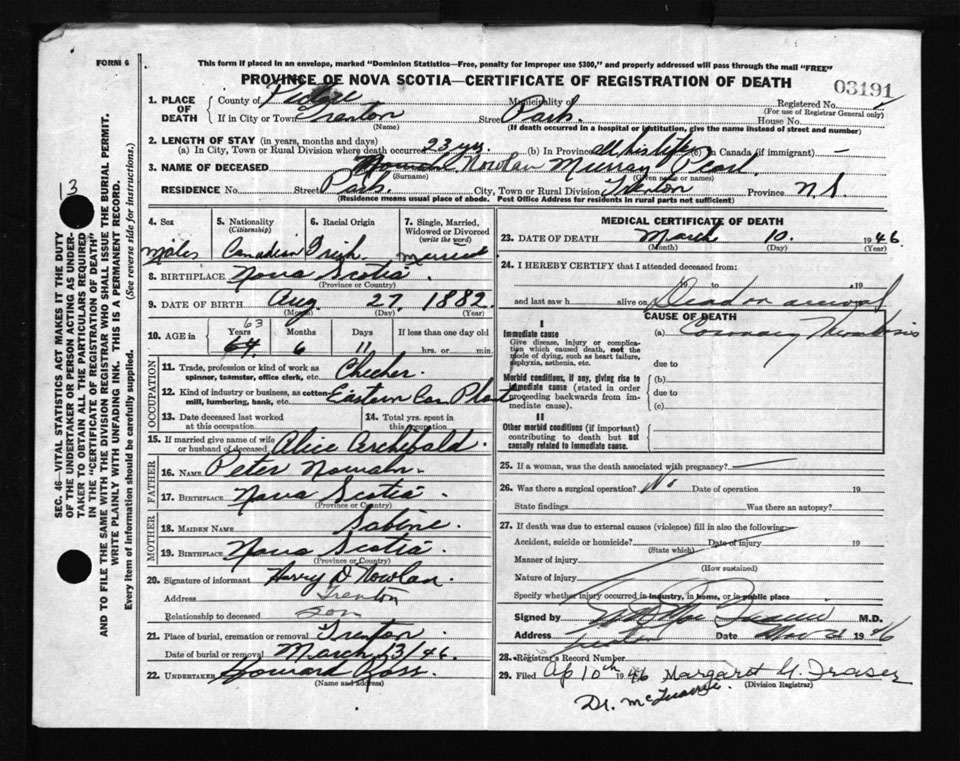 FORM 6
This form if placed in an envelope, marked "Dominion Statistics—Free, penalty for improper use $300," and properly addressed will pass through the mail "FREE"
PROVINCE OF NOVA SCOTIA—CERTIFICATE OF REGISTRATION OF DEATH
03191
1. PLACE OF DEATH County of Pictou Municipality of Registered No.
(For use of Registrar General only)
If in City or Town Trenton Street Park House No.
(Name) (If death occurred in a hospital or institution, give the name instead of street and number)
2. LENGTH OF STAY (in years, months and days)
(a) In City, Town or Rural Division where death occurred 23 yrs (b) In Province all his life (c) In Canada (if immigrant) —
3. NAME OF DECEASED Nowlan Murray
(Surname) (Given name or names)
RESIDENCE No. Street Park City, Town or Rural Division Trenton Province N.S.
(Residence means usual place of abode. Post Office Address for residents in rural parts not sufficient)
4. Sex 5. Nationality (Citizenship) 6. Racial Origin 7. Single, Married, Widowed or Divorced (write the word)
Canadian Irish Married
8. BIRTHPLACE Nova Scotia
(Province or Country)
9. DATE OF BIRTH Aug 27, 1882
(Month) (Day) (Year)
10. AGE in Years Months Days If less than one day old
63 64 6 11 hrs. or min.
OCCUPATION
11. Trade, profession or kind of work as spinner, teamster, office clerk, etc. Checker.
12. Kind of industry or business, as cotton mill, lumbering, bank, etc. Eastern Car Plant
13. Date deceased last worked at this occupation
14. Total yrs. spent in this occupation
15. If married give name of wife or husband of deceased Alice Archibald.
FATHER
16. NAME Peter
17. BIRTHPLACE Nova Scotia
(Province or Country)
MOTHER
18. MAIDEN NAME Sabine.
19. BIRTHPLACE Nova Scotia
(Province or Country)
20. Signature of informant Harry D Nowlan.
Address Trenton
Relationship to deceased Son
21. Place of burial, cremation or removal Trenton.
Date of burial or removal March 13/46.
22. UNDERTAKER Howard Ross
(Name and address)
MEDICAL CERTIFICATE OF DEATH
23. DATE OF DEATH March 10. 1946.
(Month) (Day) (Year)
24. I HEREBY CERTIFY that I attended deceased from:
19 to , 19
and last saw h alive on Dead on arrival
CAUSE OF DEATH
I
Immediate cause (a) Coronary Thrombosis
Give disease, injury or complication which caused death, not the mode of dying, such as heart failure, asphyxia, asthenia, etc.
due to
Morbid conditions, if any, giving rise to immediate cause (stated in order proceeding backwards from immediate cause).
(b)
due to
(c)
II
Other morbid conditions (if important) contributing to death but not causally related to immediate cause.
25. If a woman, was the death associated with pregnancy? —
26. Was there a surgical operation? No Date of operation 19
State findings Was there an autopsy?
27. If death was due to external causes (violence) fill in also the following:
Accident, suicide or homicide? Date of injury 19
(State which)
Manner of injury
(How sustained)
Nature of injury
Specify whether injury occurred in industry, in home, or in public place
Signed by M.D.
Address Date 1946
28. Registrar's Record Number
29. Filed Ap 10th 1946 Margaret G. Fraser
(Division Registrar)
Dr.
13
SEC. 46—VITAL STATISTICS ACT MAKES IT THE DUTY
OF THE UNDERTAKER OR PERSON ACTING AS UNDER-
TAKER TO OBTAIN ALL THE PARTICULARS REQUIRED
IN THE "CERTIFICATE OF REGISTRATION OF DEATH"
AND TO FILE THE SAME WITH THE DIVISION REGISTRAR WHO SHALL ISSUE THE BURIAL PERMIT.
WRITE PLAINLY WITH UNFADING INK. THIS IS A PERMANENT RECORD.
Every item of information should be carefully supplied. (See reverse side for instructions.)